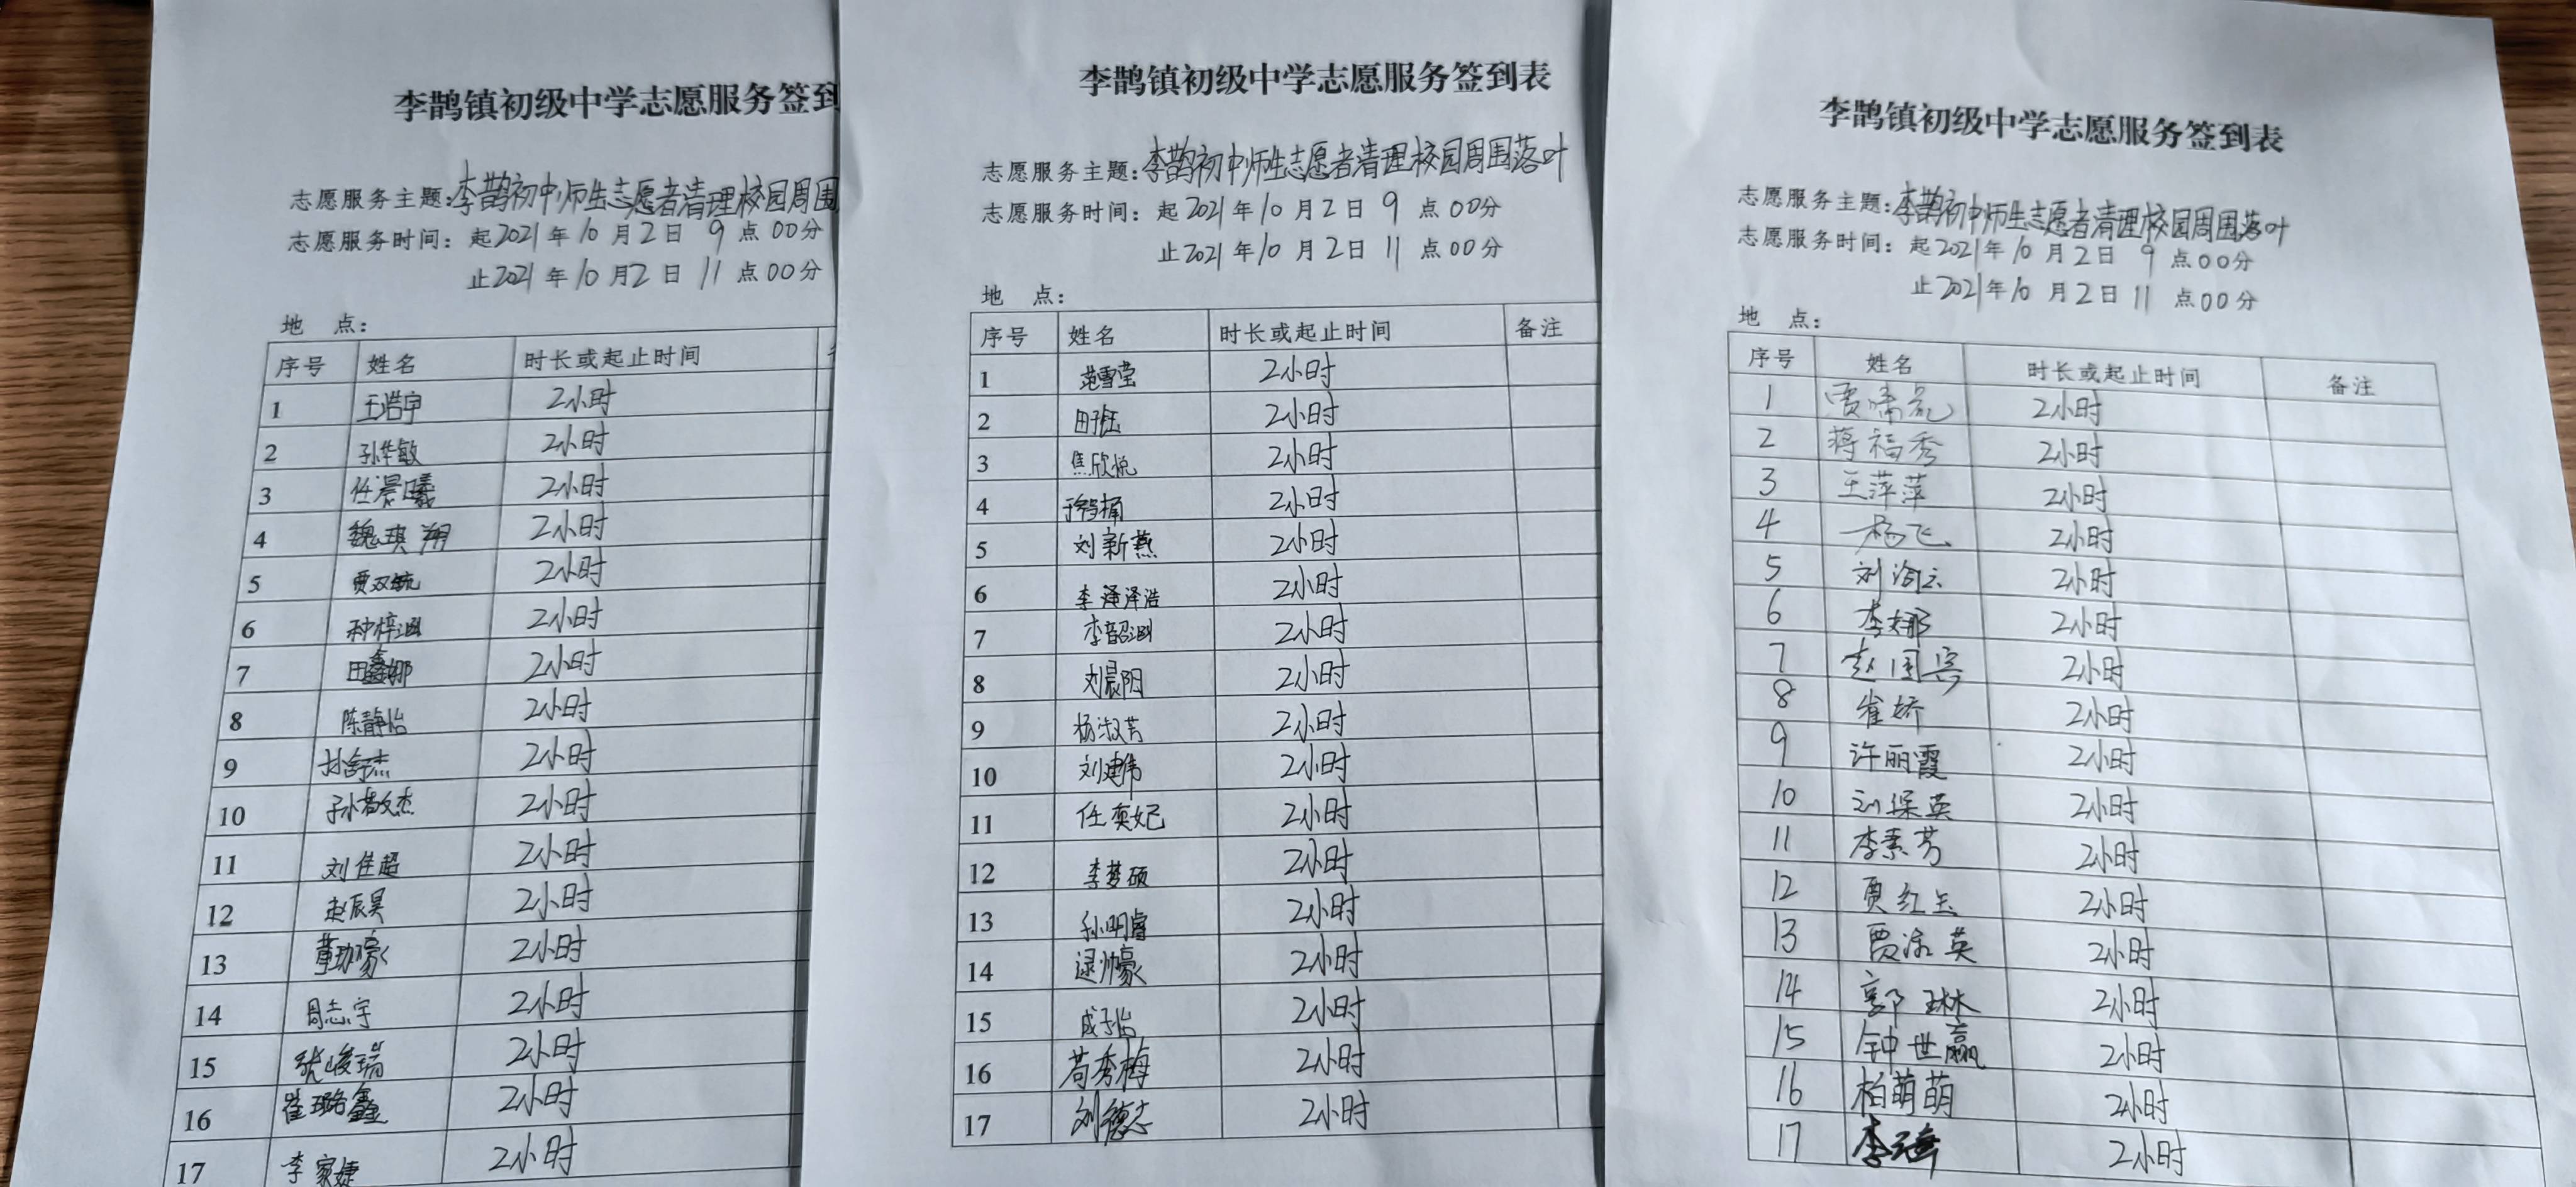 李鹊镇初级中学志愿服务签到
志愿服务主题:李鹊初中师生志愿者清理校园周围
志愿服务时间: 起2021年10月2日 9点00分
止2021年10月2日 11点00分
地 点:
序号 姓名 时长或起止时间
1 王浩宇 2小时
2 孙华敏 2小时
3 任晨曦 2小时
4 魏琪翔 2小时
5 贾双毓 2小时
6 种梓涵 2小时
7 田鑫娜 2小时
8 陈静怡 2小时
9 孙舒杰 2小时
10 孙敬杰 2小时
11 刘佳超 2小时
12 赵辰昊 2小时
13 2小时
14 周志宇 2小时
15 张峻瑞 2小时
16 崔璐鑫 2小时
17 李家婕 2小时
李鹊镇初级中学志愿服务签到表
志愿服务主题:李鹊初中师生志愿者清理校园周围落叶
志愿服务时间: 起2021年10月2日 9点00分
止2021年10月2日 11点00分
地 点:
序号 姓名 时长或起止时间 备注
1 范雪莹 2小时
2 田钰 2小时
3 焦欣悦 2小时
4 2小时
5 刘新燕 2小时
6 李泽浩 2小时
7 李韶涵 2小时
8 刘晨阳 2小时
9 杨淑芳 2小时
10 刘建伟 2小时
11 任奕妃 2小时
12 李梦硕 2小时
13 孙明睿 2小时
14 逯帅豪 2小时
15 成子怡 2小时
16 苟秀梅 2小时
17 刘德志 2小时
李鹊镇初级中学志愿服务签到表
志愿服务主题:李鹊初中师生志愿者清理校园周围落叶
志愿服务时间: 起2021年10月2日 9点00分
止2021年10月2日 11点00分
地 点:
序号 姓名 时长或起止时间 备注
1 2小时
2 蒋福秀 2小时
3 王萍萍 2小时
4 杨飞 2小时
5 2小时
6 李娜 2小时
7 赵国宾 2小时
8 崔娇 2小时
9 许丽霞 2小时
10 刘保英 2小时
11 李素芳 2小时
12 贾红玉 2小时
13 2小时
14 郭琳 2小时
15 钟世赢 2小时
16 柏萌萌 2小时
17 2小时